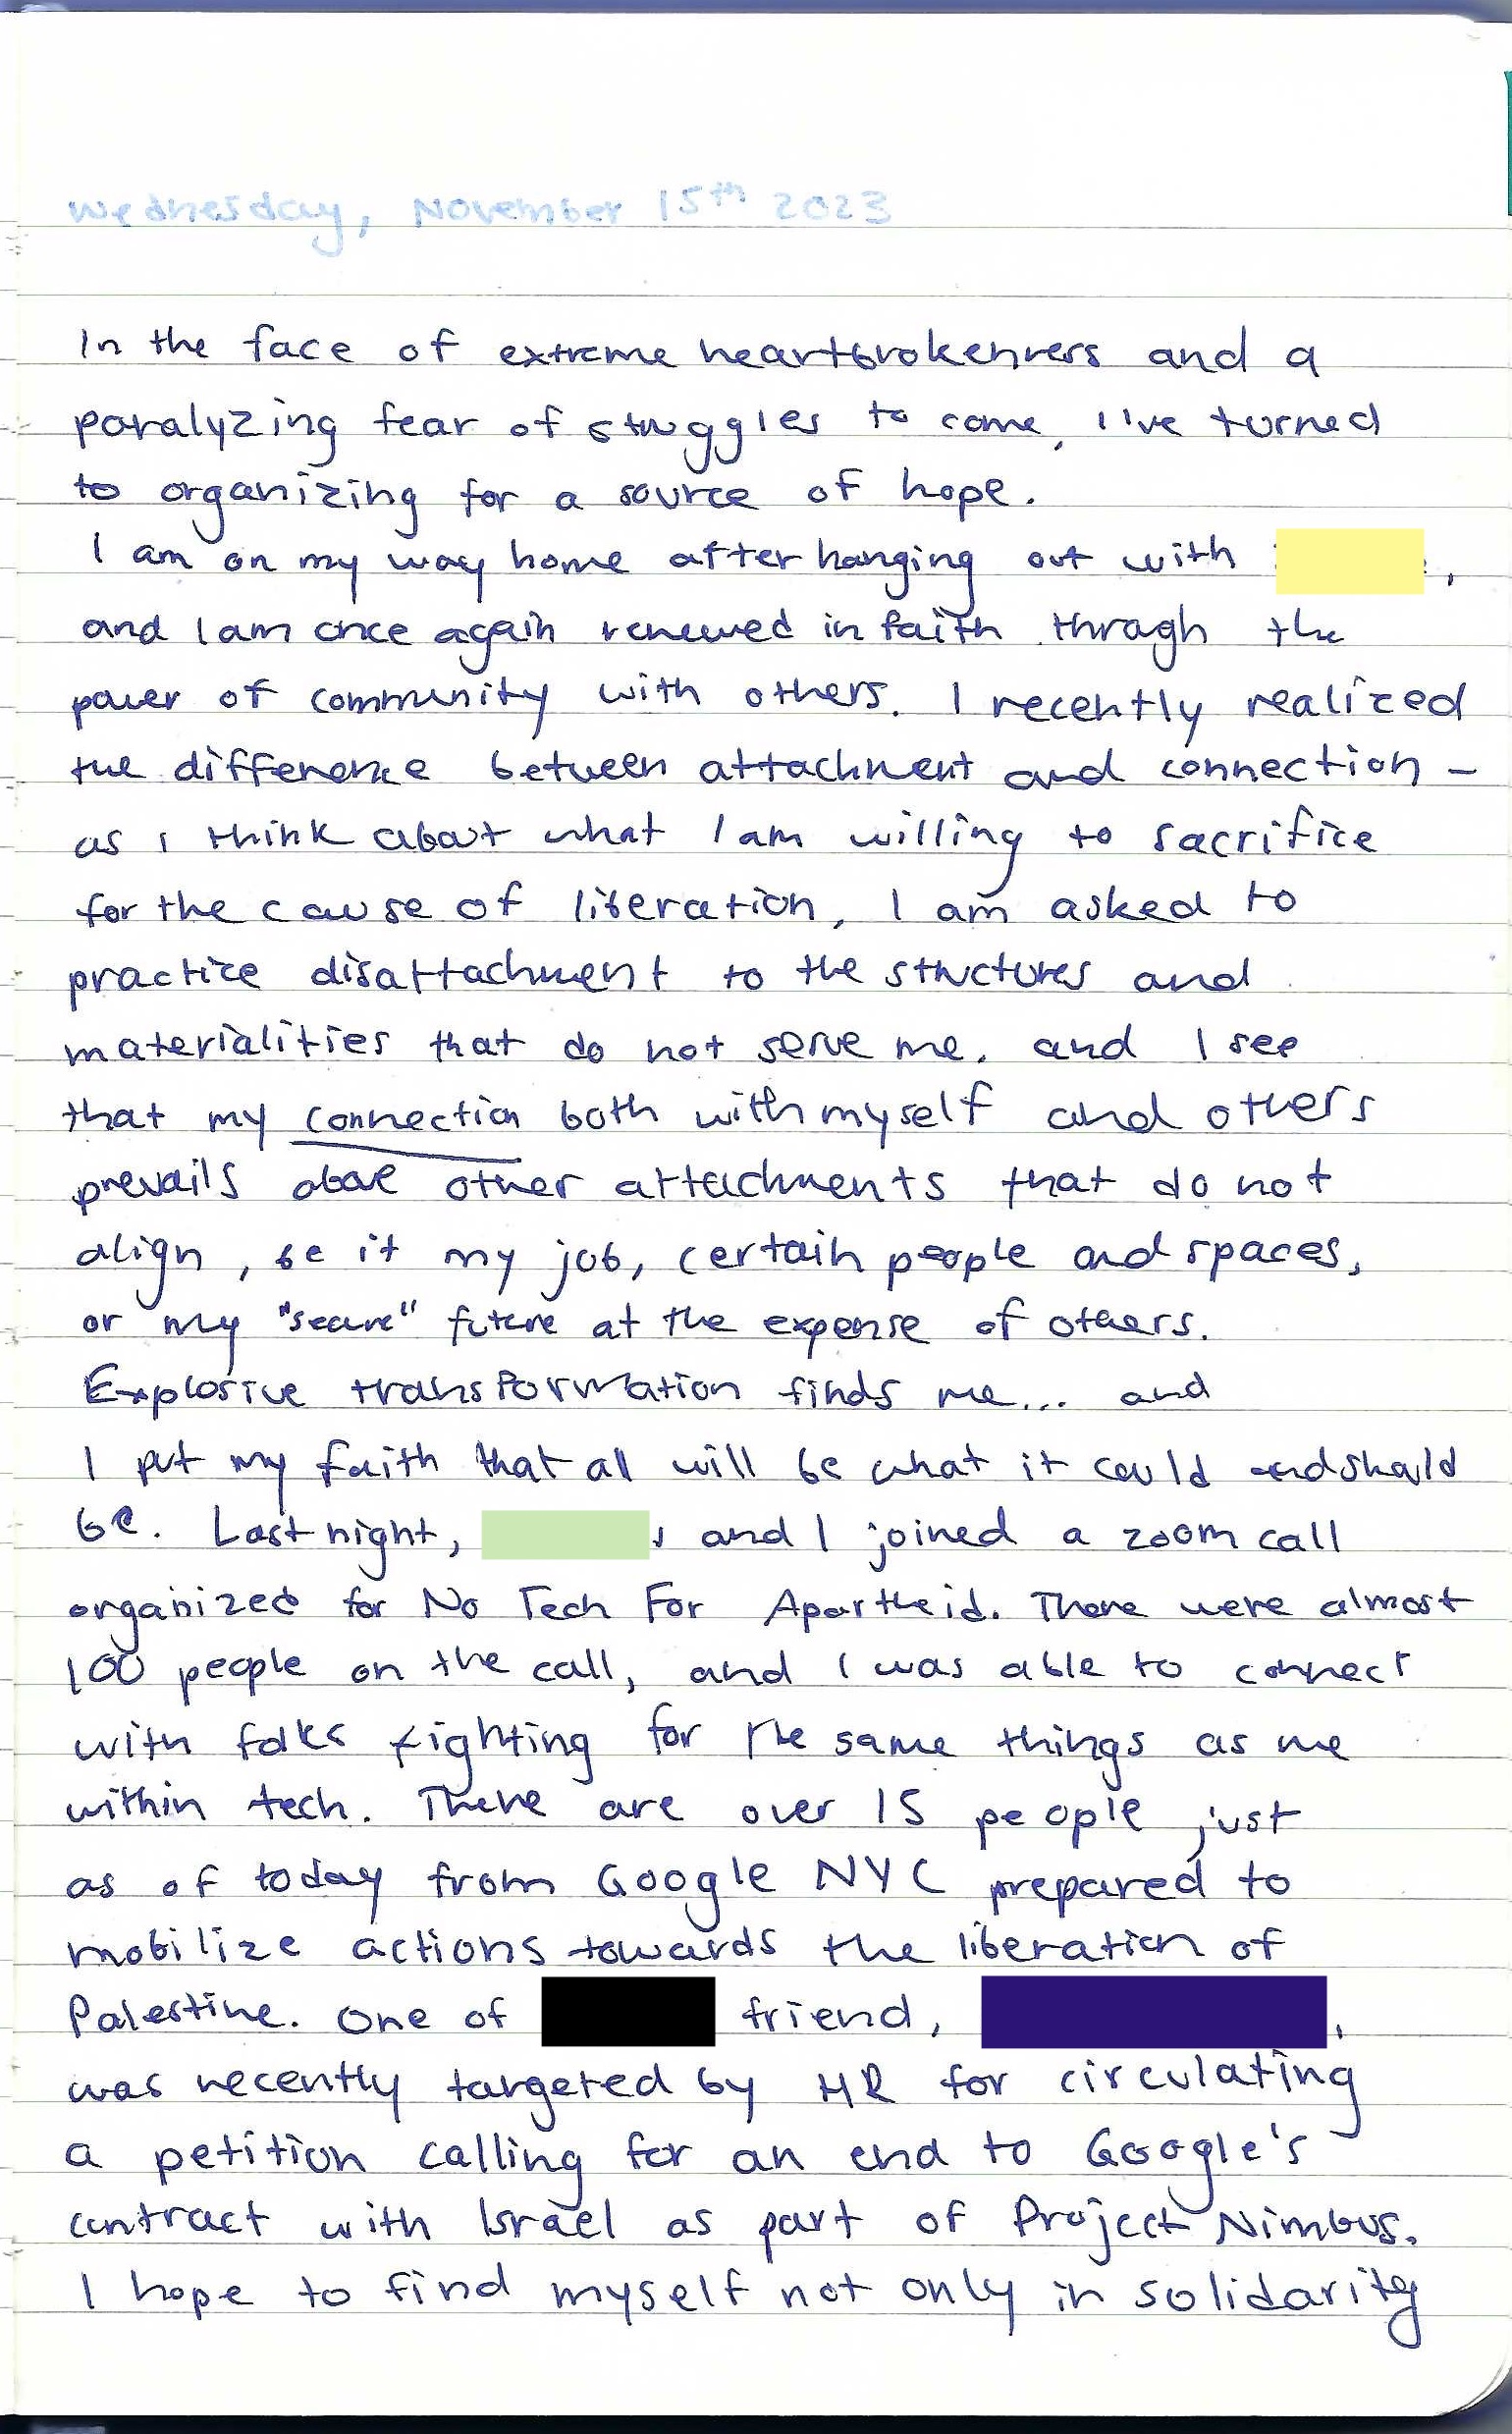 Wednesday, November 15th 2023
In the face of extreme heartbrokenness and a
paralyzing fear of struggles to come, I've turned
to organizing for a source of hope.
I am on my way home after hanging out with ,
and I am once again renewed in faith through the
power of community with others. I recently realized
the difference between attachment and connection –
as I think about what I am willing to sacrifice
for the cause of liberation, I am asked to
practice disattachment to the structures and
materialities that do not serve me. and I see
that my connection both with myself and others
prevails above other attachments that do not
align, be it my job, certain people and spaces,
or my "secure" future at the expense of others.
Explosive transformation finds me... and
I put my faith that all will be what it could and should
be. Last night, , and I joined a zoom call
organized for No Tech For Apartheid. There were almost
100 people on the call, and I was able to connect
with folks fighting for the same things as me
within tech. There are over 15 people just
as of today from Google NYC prepared to
mobilize actions towards the liberation of
Palestine. One of friend, ,
was recently targeted by HR for circulating
a petition calling for an end to Google's
contract with Israel as part of Project Nimbus.
I hope to find myself not only in solidarity